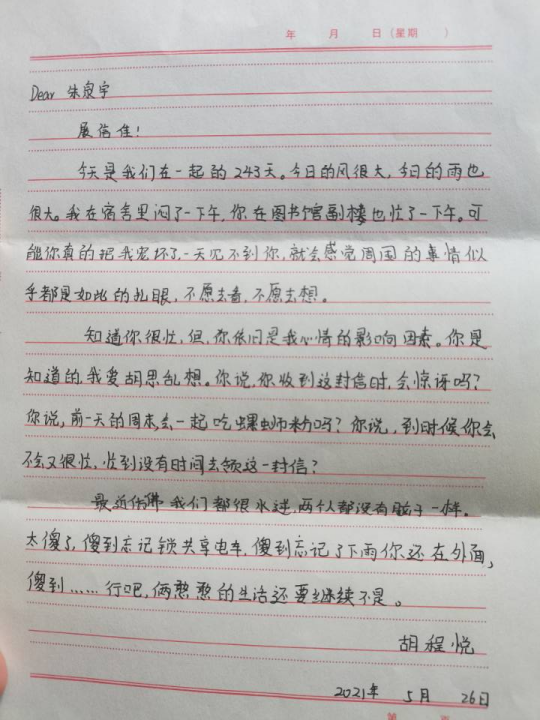 年 月 日(星期 )
Dear 朱泉宇
展信佳!
今天是我们在一起的243天。今日的风很大,今日的雨也
很大。我在宿舍里闷了一下午,你在图书馆副楼也忙了一下午。可
能你真的把我宠坏了,一天见不到你,就会感觉周围的事情似
乎都是如此的扎眼,不愿去看,不愿去想。
知道你很忙,但,你依旧是我心情的影响因素。你是
知道的,我爱胡思乱想。你说,你收到这封信时,会惊讶吗?
你说,前一天的周末,会一起吃螺蛳粉吗?你说,到时候你会
不会又很忙,忙到没有时间去领这一封信?
最近仿佛我们都很水逆,两个人都没有脑子一样。
太傻了,傻到忘记锁共享电车,傻到忘记了下雨你还在外面,
傻到……行吧,俩憨憨的生活还要继续不是。
胡程悦
2021年 5月 26日
第